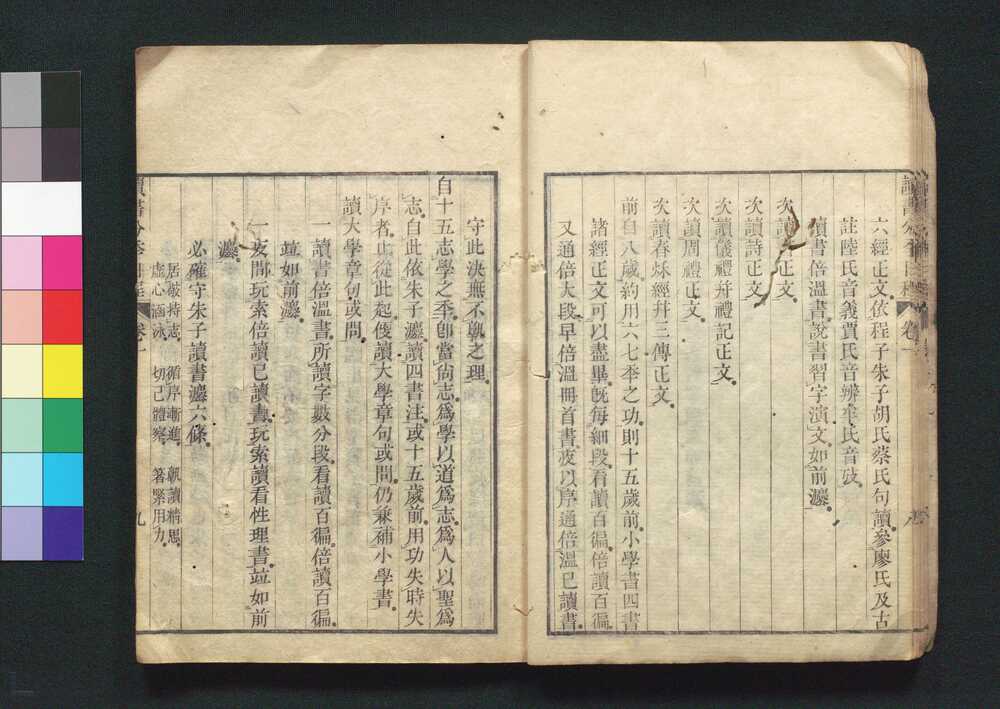 六經正文依程子朱子胡氏蔡氏句讀參廖氏及古
註陸氏音義賈氏音辨牟氏音攷
讀書倍溫書說書習字演文如前灋
次讀 正文
次讀詩正文
次讀儀禮幷禮記正文
次讀周禮正文
次讀春秌經幷三傳正文
前自八歲約用六七秊之功則十五歲前小學書四書
諸經正文可以盡畢旣每細段看讀百徧倍讀百徧
又通倍大段早倍溫冊首書夜以序通倍溫已讀書
守此決無不孰之理
自十五志學之秊卽當尙志爲學以道爲志爲人以聖爲
志自此依朱子灋讀四書注或十五歲前用功失時失
序者止從此起便讀大學章句或問仍兼補小學書
讀大學章句或問
一讀書倍溫書所讀字數分段看讀百徧倍讀百徧
竝如前灋
一夜間玩索倍讀已讀書玩索讀看性理書竝如前
灋
必確守朱子讀書灋六條
居敬持志 循序漸進 孰讀精思
虛心涵泳 切己體察 箸緊用力
卷一
九
卷一